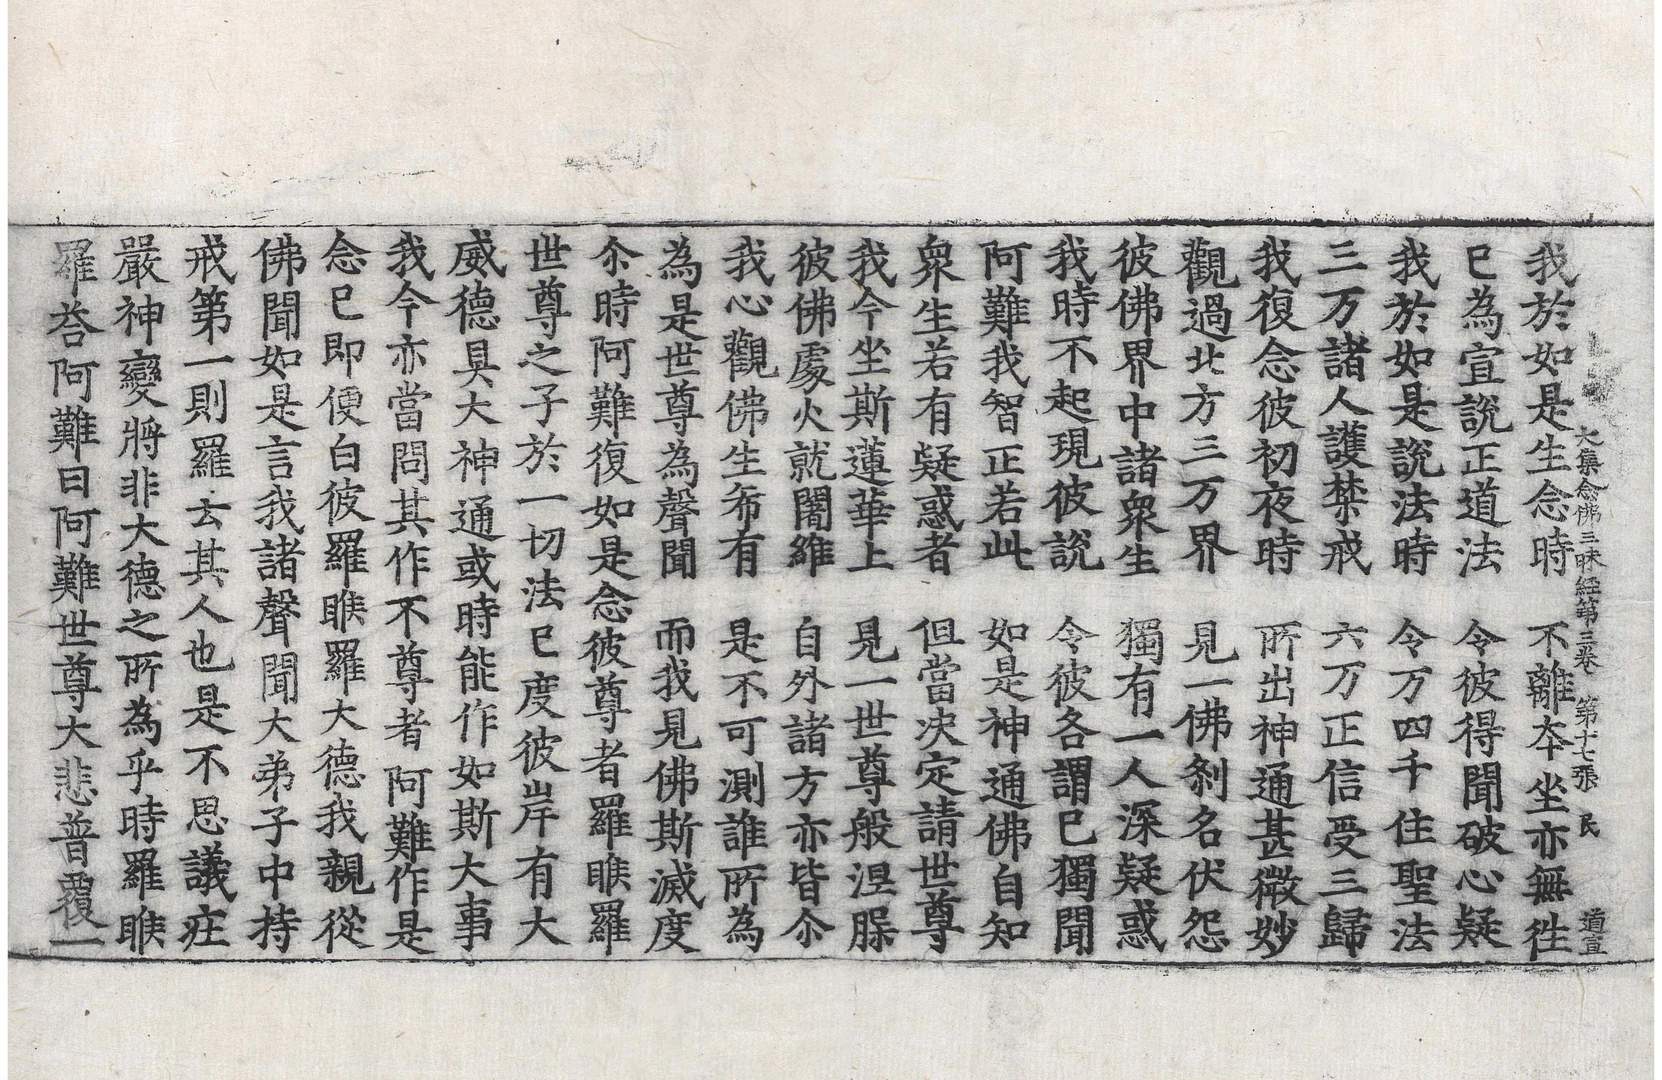 大集念佛三昧経第三卷 第十七張 民 道宣
我於如是生念時 不離夲坐亦無徃
已為宣說正道法 令彼得聞破心疑
我於如是說法時 令万四千住聖法
三万諸人護禁戒 六万正信受三歸
我復念彼初夜時 所出神通甚微妙
觀過北方三万界 見一佛剎名伏怨
彼佛界中諸衆生 獨有一人深疑惑
我時不起現彼說 令彼各謂已獨聞
阿難我智正若此 如是神通佛自知
衆生若有疑惑者 但當决定請世尊
我今坐斯蓮華上 見一世尊般涅槃
彼佛處火就闍維 自外諸方亦皆尒
我心觀佛生希有 是不可測誰所為
為是世尊為聲聞 而我見佛斯滅度
尒時阿難復如是念彼尊者羅睺羅
世尊之子於一切法已度彼岸有大
威德具大神通或時能作如斯大事
我今亦當問其作不尊者阿難作是
念已即便白彼羅睺羅大德我親從
佛聞如是言我諸聲聞大弟子中持
戒第一則羅云其人也是不思議莊
嚴神變將非大德之所為乎時羅睺
羅荅阿難曰阿難世尊大悲普覆一